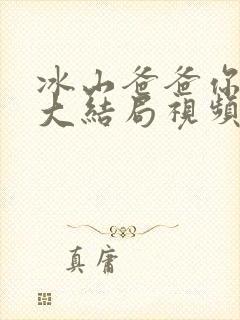 冰山爸爸你
大結局視頻
真庸